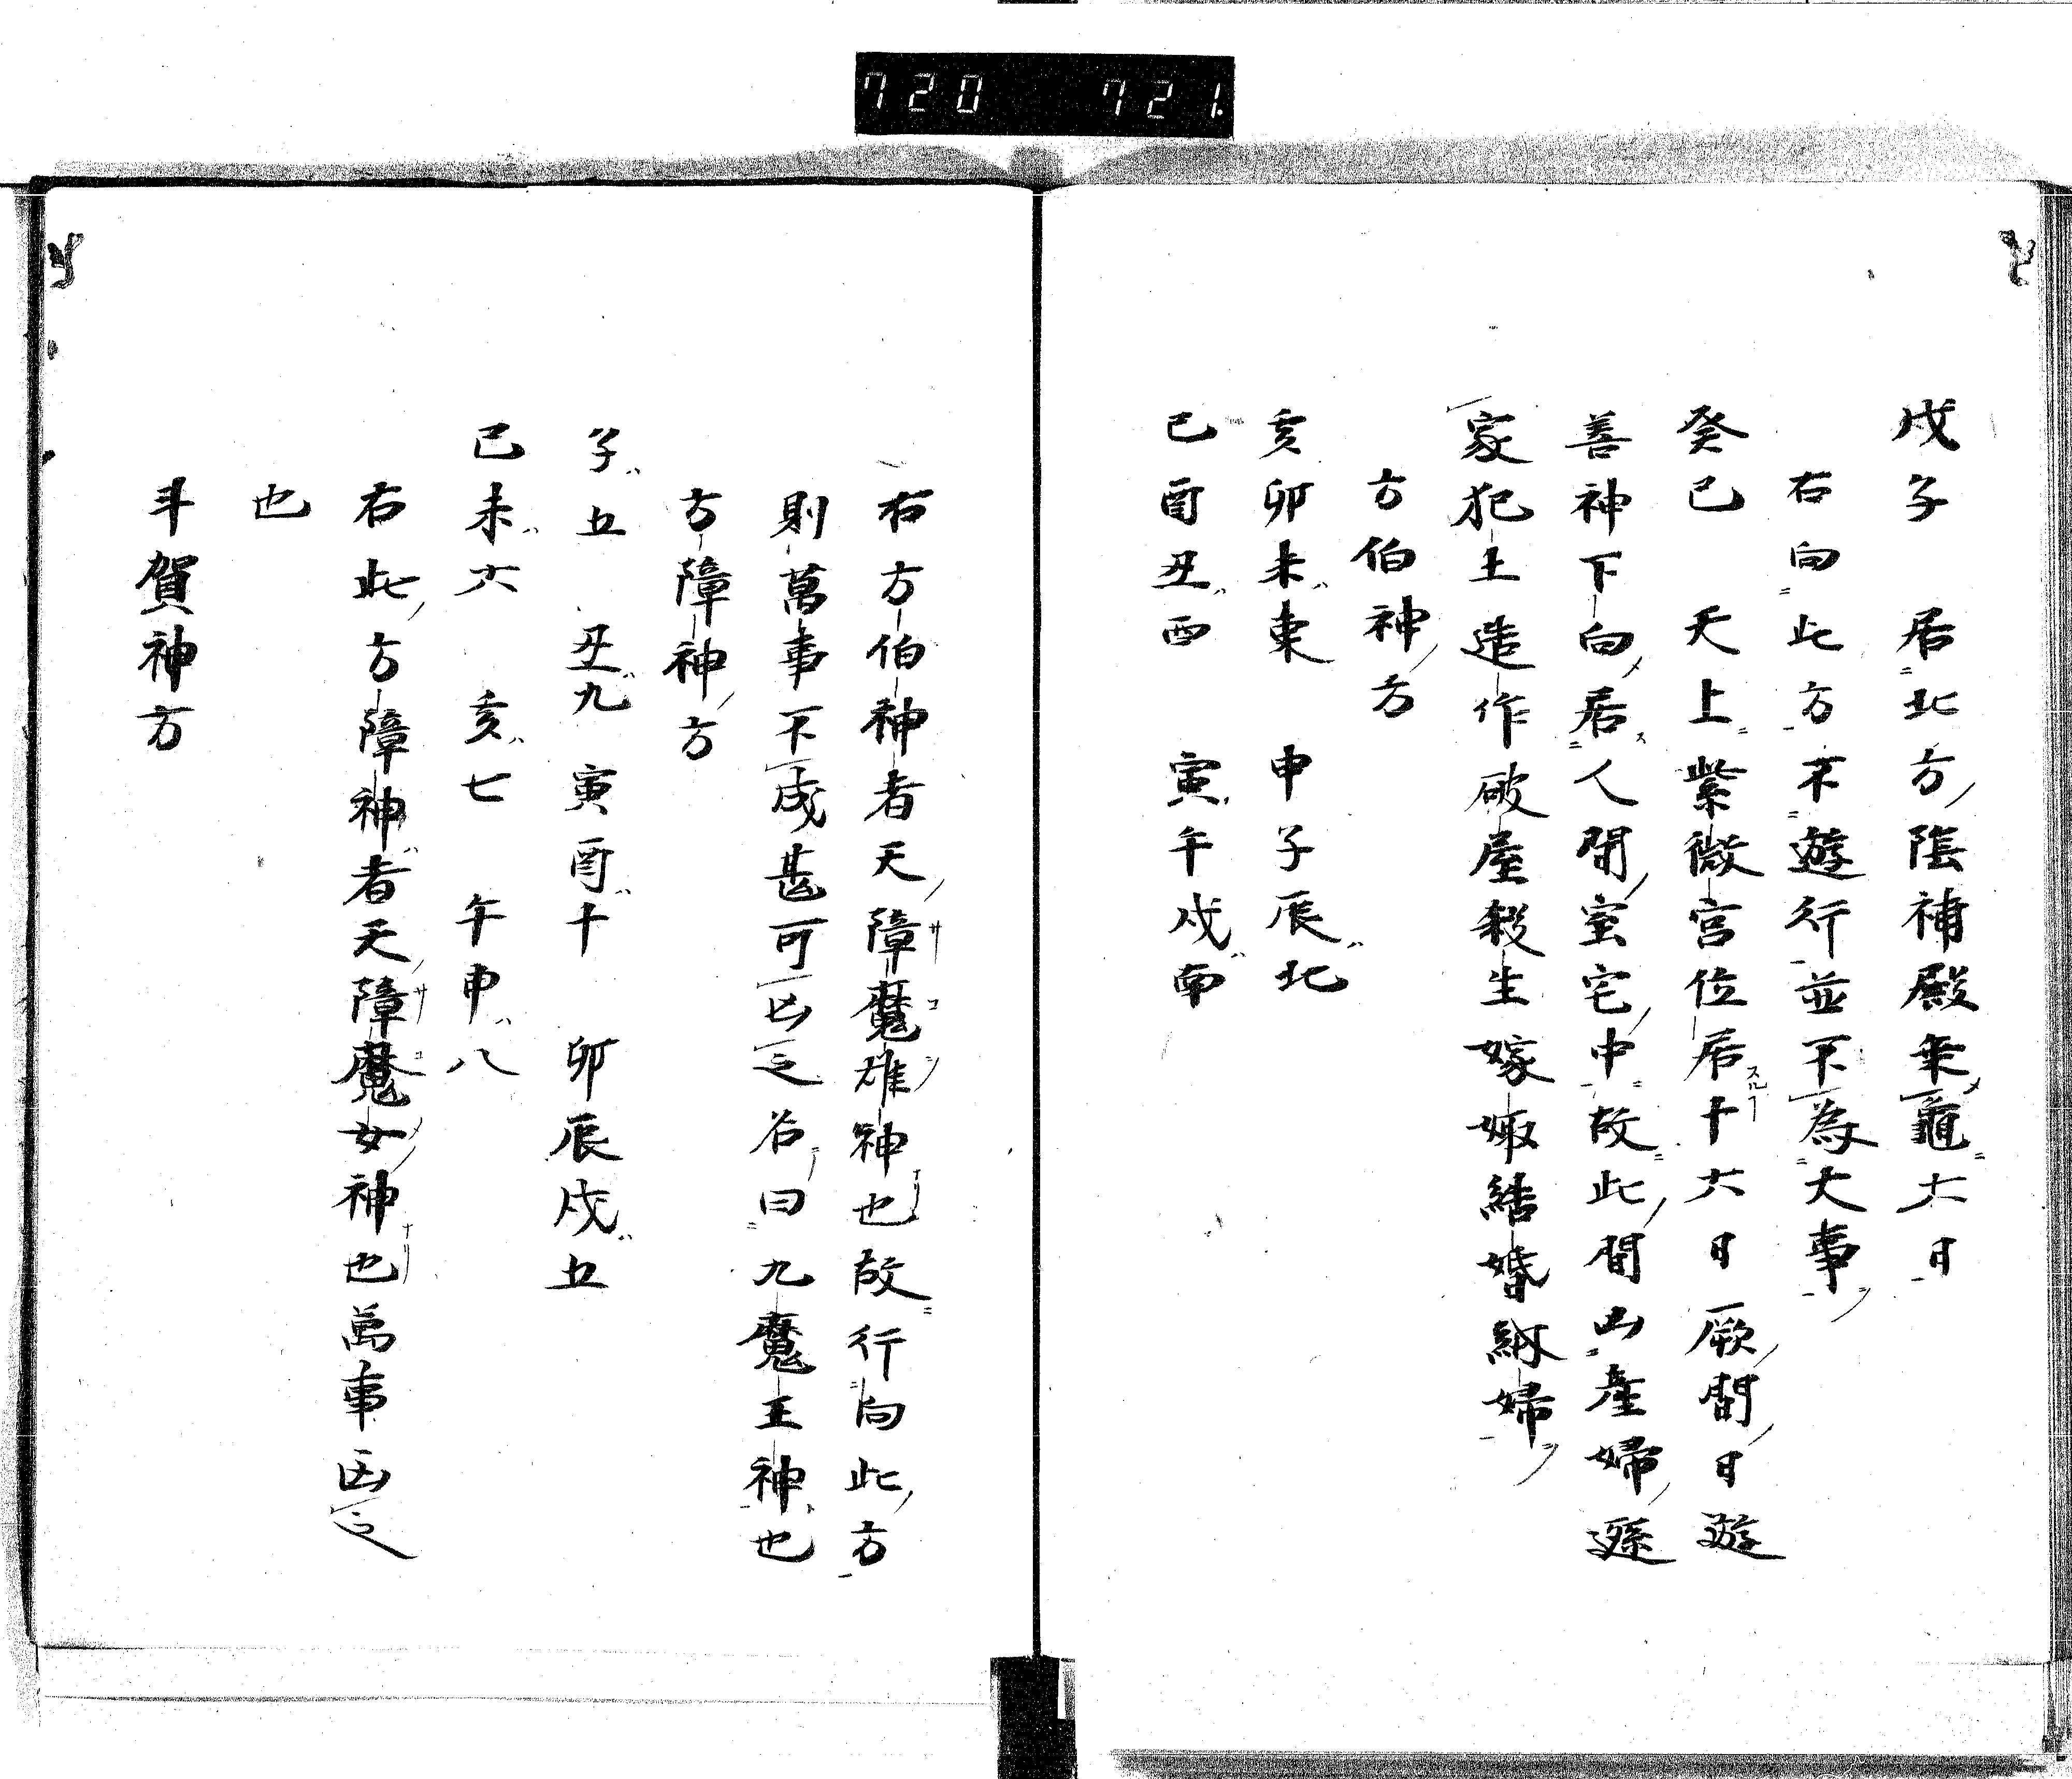 720 721
戊子 居北方陰補殿乗龜六日
右向此方不遊行並不為大事
癸巳 天上紫微宮位居十六日厥間日遊
善神下向居人間室宅中故此間出産婦遜
家犯土造作破屋殺生嫁娵結婚納婦
方伯神方
亥卯未東 申子辰北
巳酉丑西 寅午戌南
右方伯神者天障魔雄神也故行向此方
則萬事不成甚可凶之名曰九魔王神也
方障神方
子五 丑九 寅酉十 卯辰戌五
巳未六 亥七 午申八
右此方障神者天障魔女神也萬事凶之
也
斗賀神方